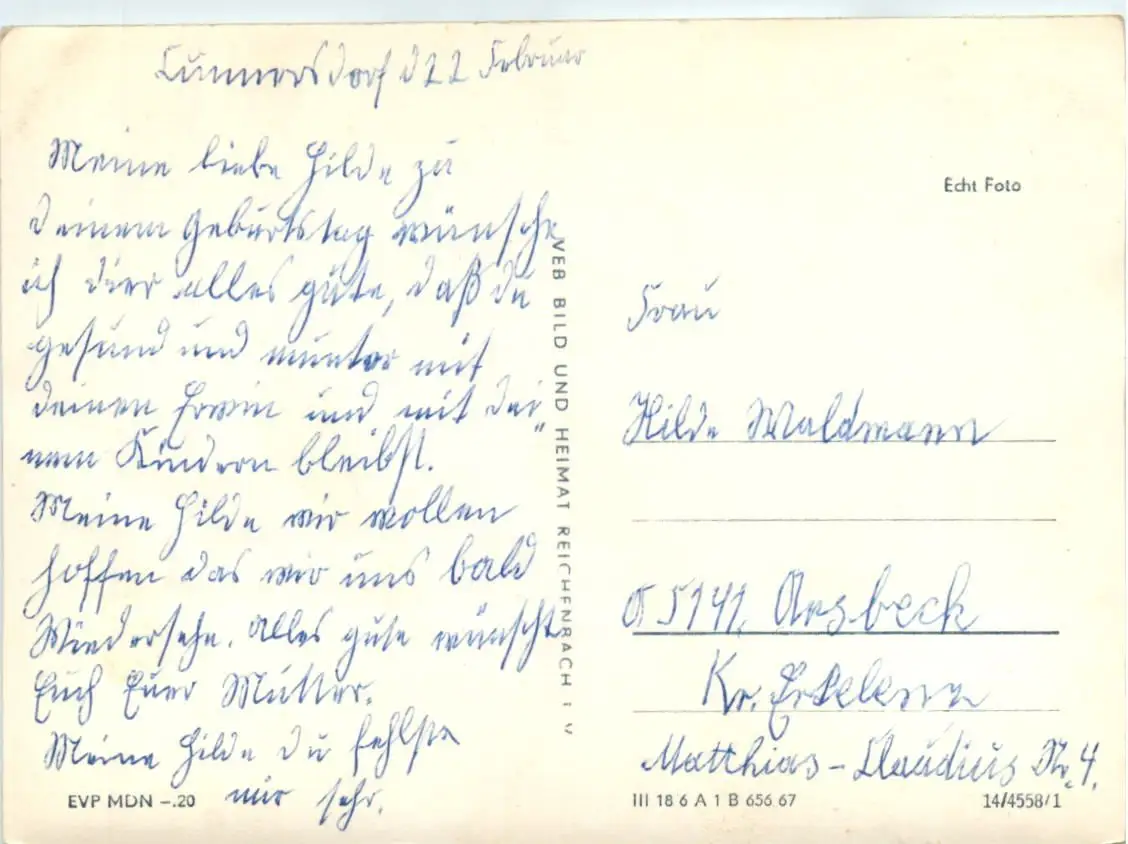 Cunnersdorf d 22 Februar
Meine liebe Hilde zu
deinem Geburtstag wünsche
ich dier alles gute, daß du
gesund und munter mit
deinen Erwin und mit dei„
nem Kindern bleibst.
Meine Hilde wir wollen
hoffen das wir uns bald
Wiedersehn. Alles gute wünscht
Euch Euer Mutter.
Meine Hilde du fehlste
mir sehr.
EVP MDN -.20
VEB BILD UND HEIMAT REICHENBACH I V
Echt Foto
Frau
Hilde Waldmann
5141. Arsbeck
Kr. Erkelenz
Matthias-Claudius Nr. 4.
III 18 6 A 1 B 656 67
14/4558/1